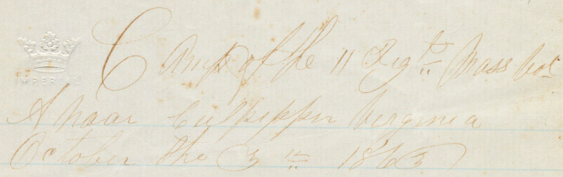 IMPERIAL
Camp of the 11 Regt. Mass Vol
A naar Culpepper Verginia
October the 3 th 1863